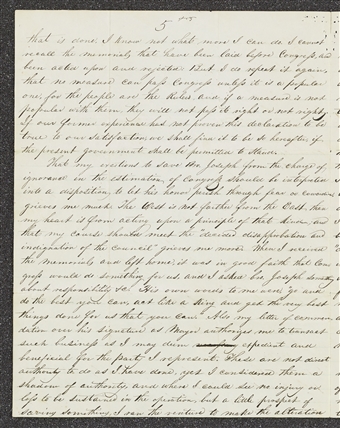 5
that is done. I know not what more I can do I cannot
recall the memorials that have been laid before Congress, and
been acted upon and rejected. But I do repeat it again,
that no measure can pass Congress unless it is a popular
one, for the people are the Rulers, and if a measure is not
popular with them, they will not pass it right or not right.
If our former experience has not proven this declaration to be
true to our Satisfaction, we shall find it to be so hereafter, if
the present government shall be permitted to Stand.
That my exertions to save Bro. Joseph from the charge of
ignorance in the estimation of Congress should be interpreted
into a disposition to let his honor perish through fear or cowardice
grieves me much. The West is not farther from the East, than
my heart is from acting upon a principle of that kind, and
that my course should meet the "decided disapprobation and
indignation of the council" grieves me more. When I received
the memorials and left home, it was in good faith that Con-
gress would do something for us, and I asked bro Joseph something
about responsibilities &c. His own words to me were "go and
do the best you can, act like a King and get the very best
things done for us that you can." Also my letter of commen-
dation over his signature as Mayor authorizes me to transact
such business as I may deem expedient and
beneficial for the party I represent. These are not direct
authority to do as I have done, yet I considered them a
shadow of authority, and where I could see no injury or
loss to be sustained in the operation, but a little prospect of
saving something, I ran the venture to make the alteration